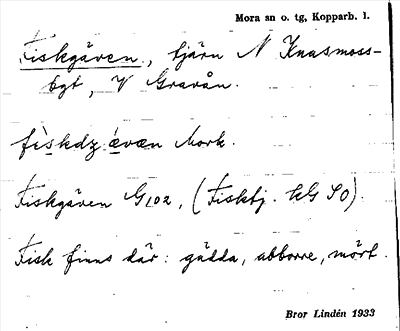 Mora sn o. tg, Kopparb. l.
Fiskgäven, tjärn N Knasmoss-
bgt, V Gravån.
fèskdz ǽvæn Mork.
Fiskgäven G102, (Fisktj. KG SO).
Fisk finns där: gädda, abborre, mört.
Bror Lindén 1933